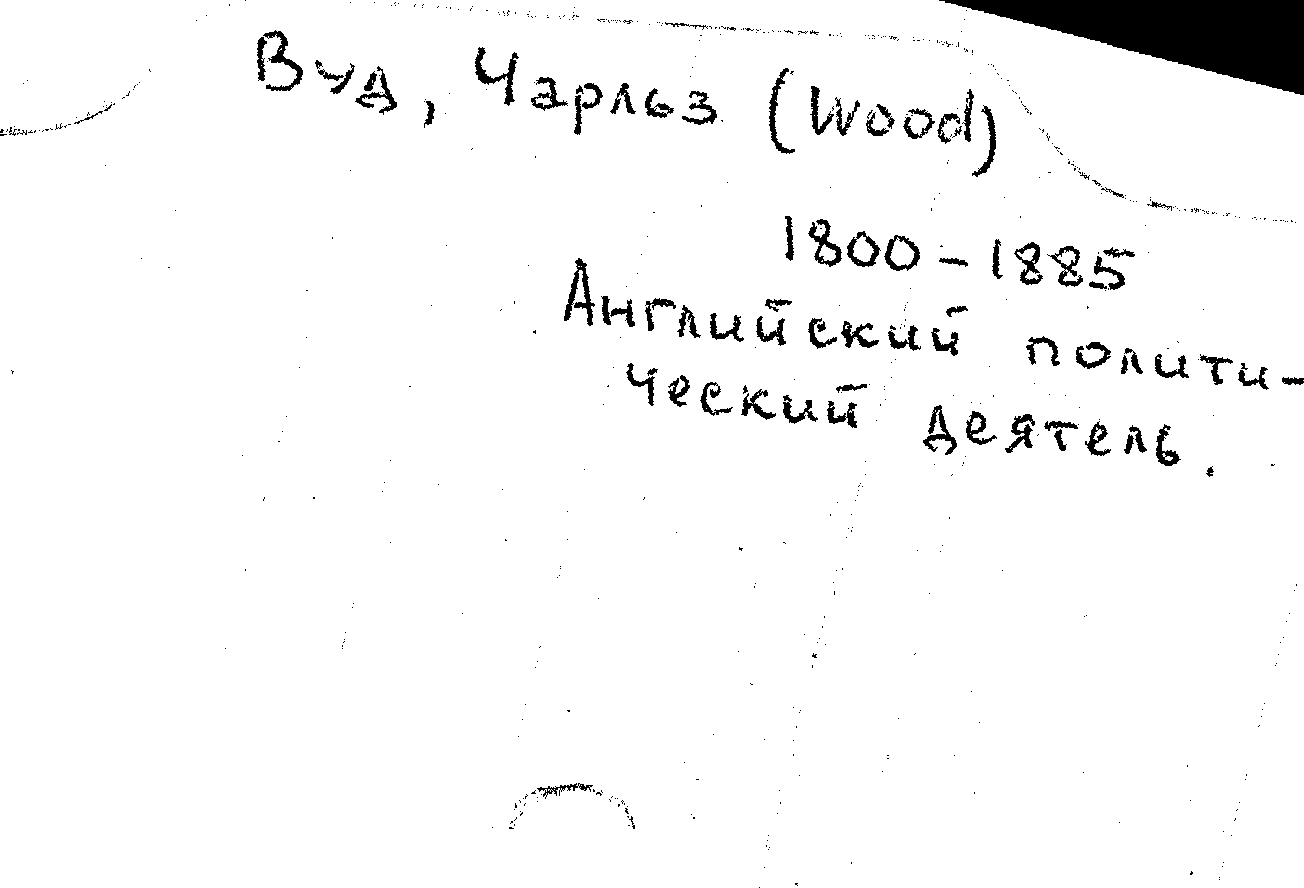 Вуд, Чарльз (Wood)
1800-1885
Английский полити-
ческий деятель.